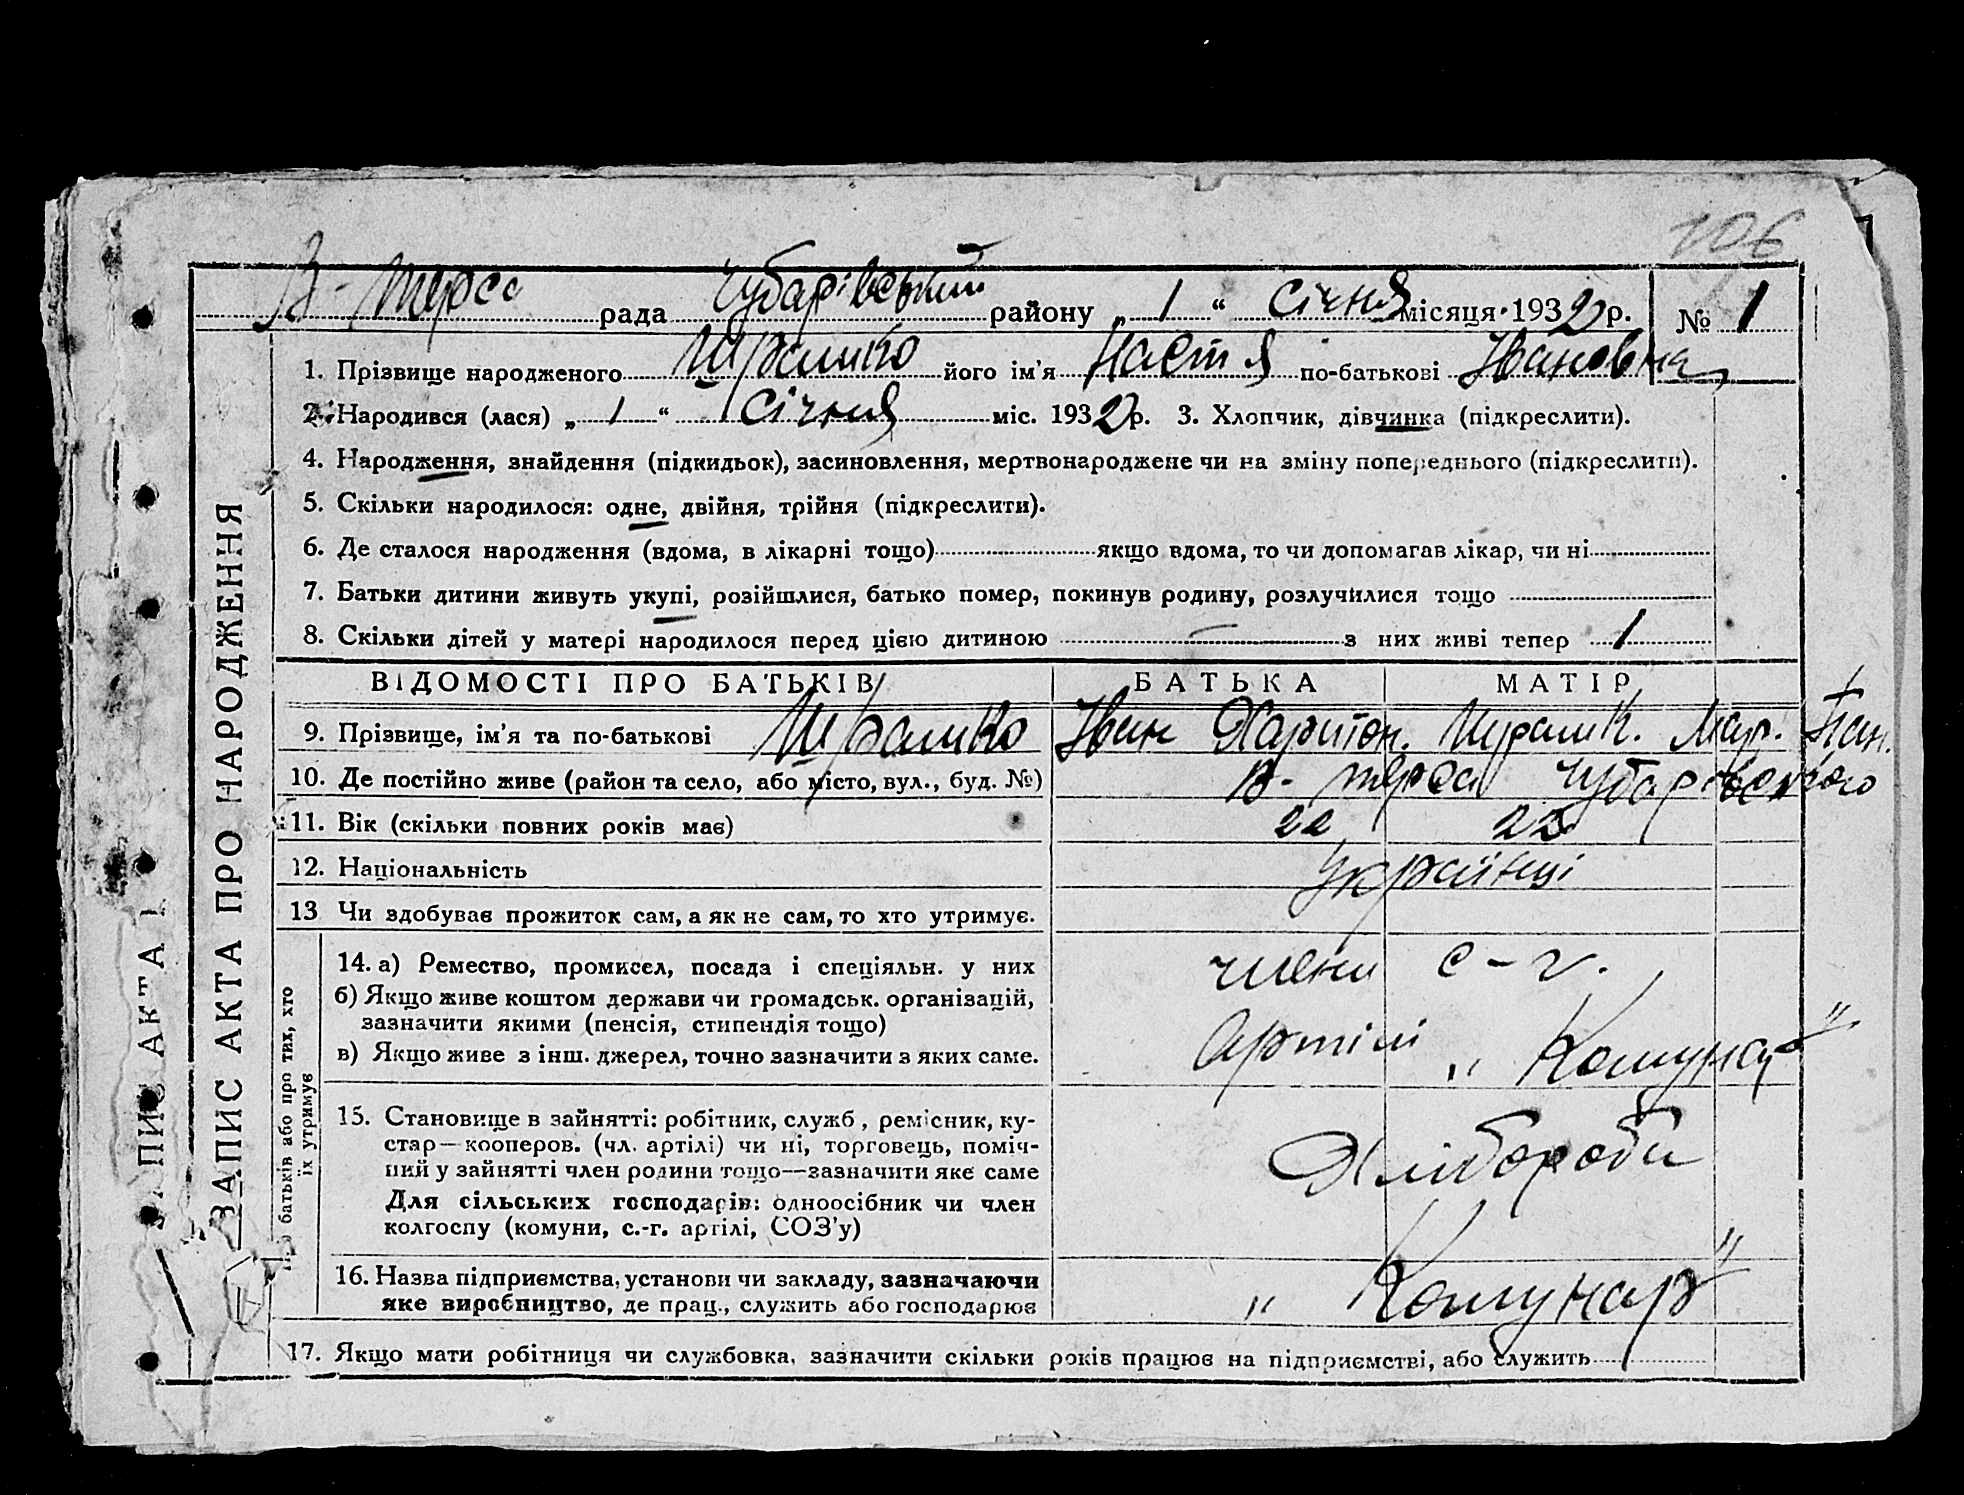 106
В-Терса рада Чубарівський району „ 1 “ Січня місяця 1932 р. № 1
1. Прізвище народженого його ім'я Настя по-батькові Івановна
2. Народився (лася) „ 1 “ Січня міс. 1932 р. 3. Хлопчик, дівчинка (підкреслити).
4. Народження, знайдення (підкидьок), засиновлення, мертвонароджене чи на зміну попереднього (підкреслити).
5. Скільки народилося: одне, двійня, трійня (підкреслити).
6. Де сталося народження (вдома, в лікарні тощо) якщо вдома, то чи допомагав лікар, чи ні
7. Батьки дитини живуть укупі, розійшлися, батько помер, покинув родину, розлучилися тощо
8. Скільки дітей у матері народилося перед цією дитиною — з них живі тепер 1
ВІДОМОСТІ ПРО БАТЬКІВ БАТЬКА МАТІР
9. Прізвище, ім'я та по-батькові Іван Харитон. Мар.
10. Де постійно живе (район та село, або місто, вул., буд. №) В-Терса Чубарівського
11. Вік (скільки повних років має) 22 22
12. Національність Українці
13 Чи здобуває прожиток сам, а як не сам, то хто утримує.
14. а) Ремество, промисел, посада і спеціяльн. у них члени с-г.
б) Якщо живе коштом держави чи громадськ. організацій,
зазначити якими (пенсія, стипендія тощо)
в) Якщо живе з інш. джерел, точно зазначити з яких саме.
Артілі „Комунар"
15. Становище в зайнятті: робітник, служб, ремісник, ку-
стар—кооперов. (чл. артілі) чи ні, торговець, поміч-
ний у зайнятті член родини тощо—зазначити яке саме
Хлібороби
Для сільських господарів: одноосібник чи член
колгоспу (комуни, с.-г. артілі, СОЗ'у)
16. Назва підприємства, установи чи закладу, зазначаючи
яке виробництво, де прац., служить або господарює
„Комунар"
17. Якщо мати робітниця чи службовка, зазначити скільки років працює на підприємстві, або служить
ЗАПИС АКТА ПРО НАРОДЖЕННЯ
батьків або про тих, хто
їх утримує
ПИС АКТА